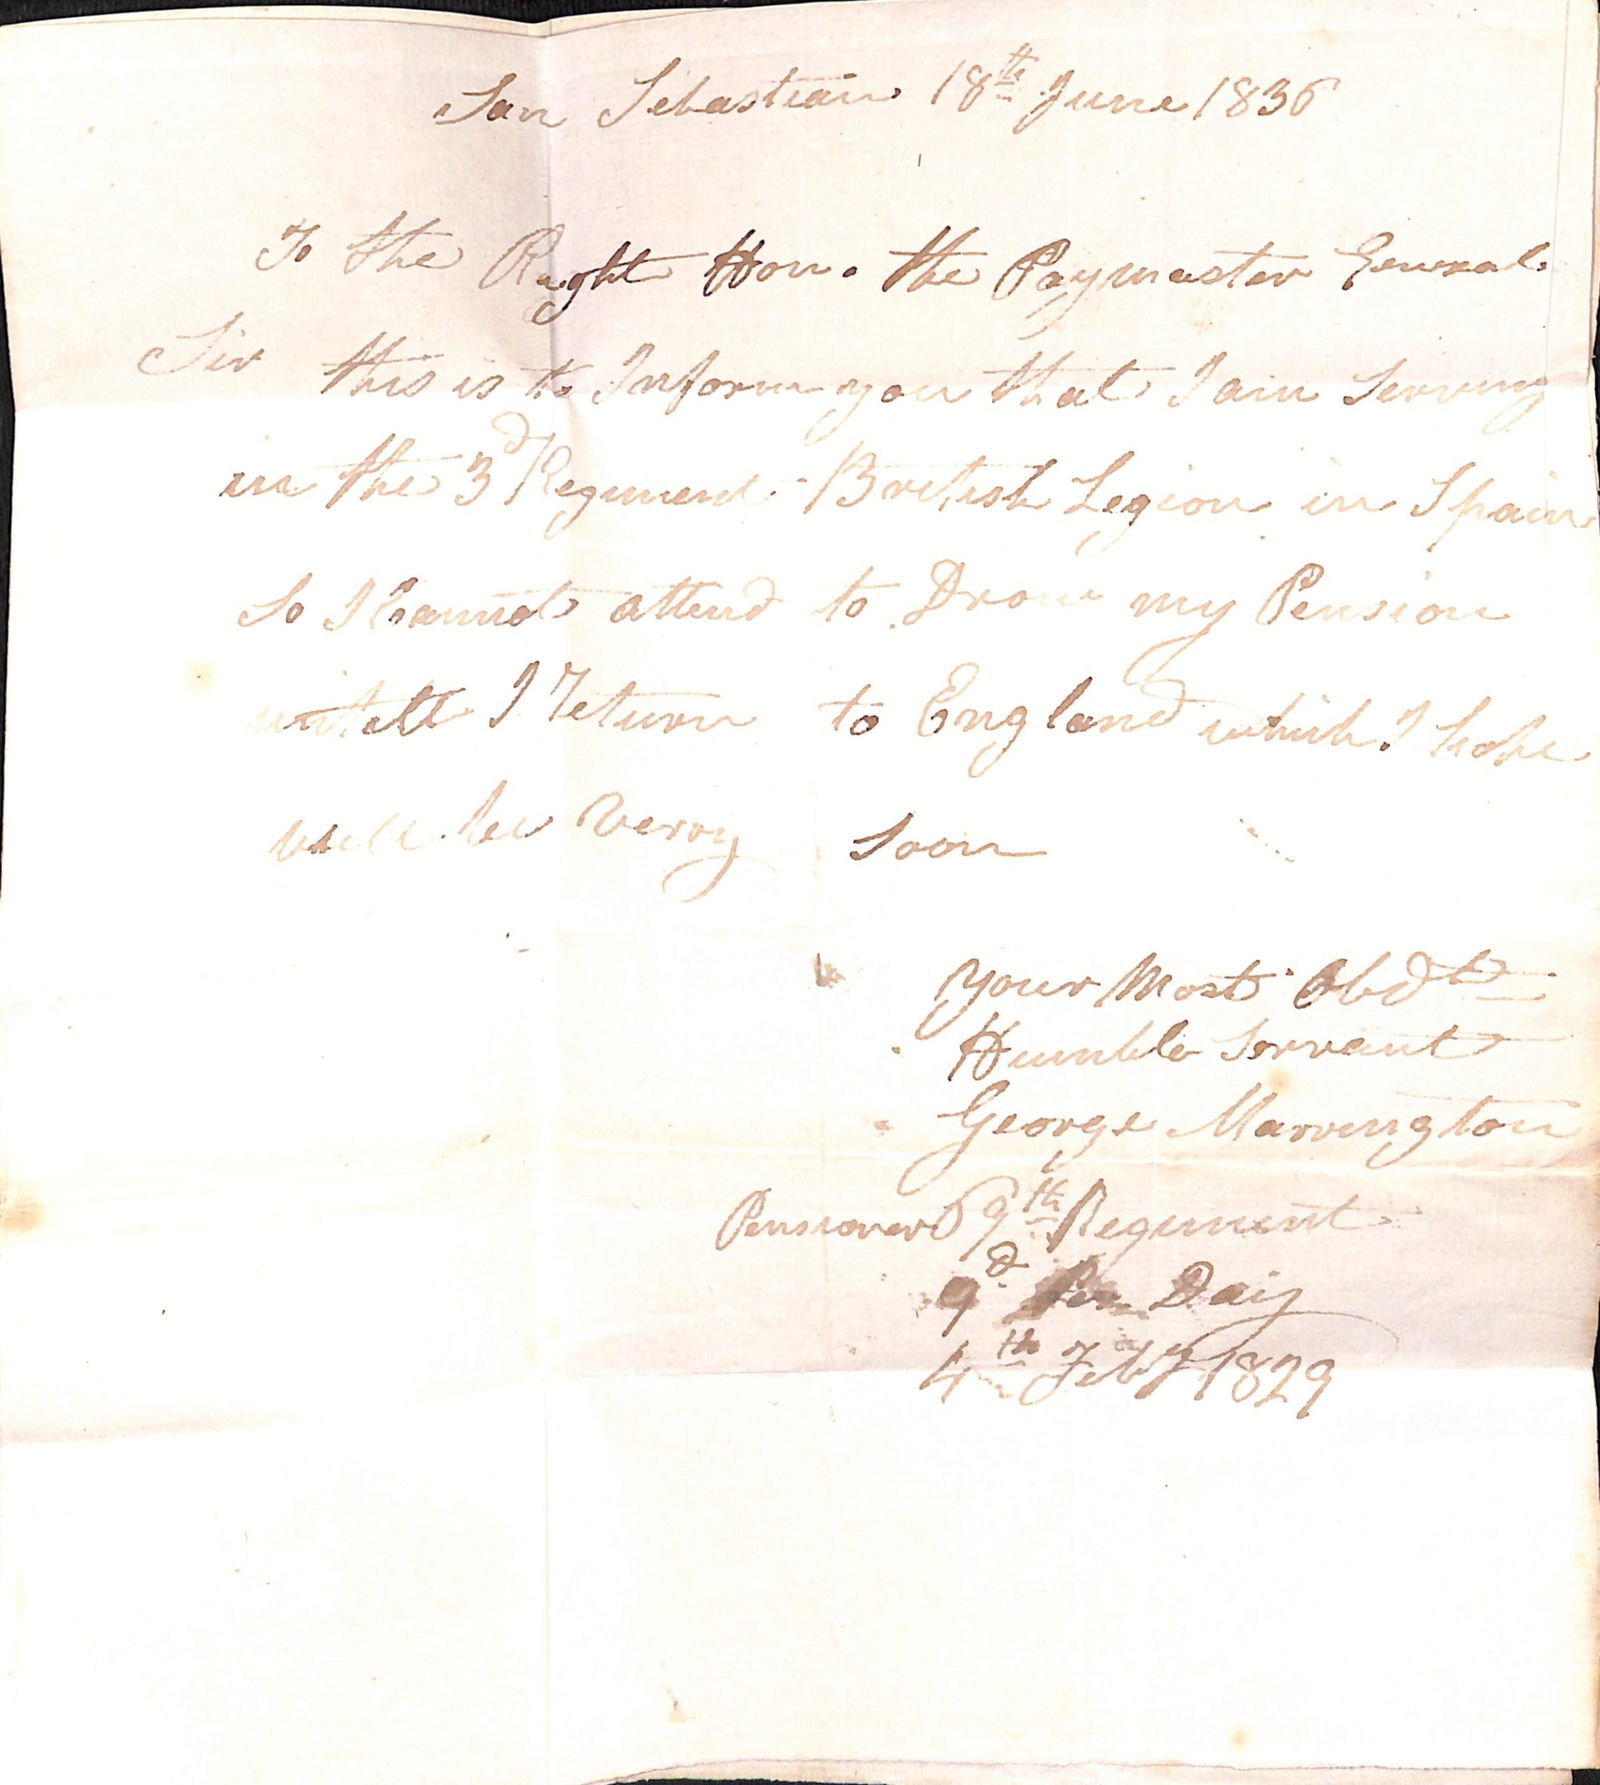 San Sebastian 18th June 1836
To the Right Hon. the Paymaster General
Sir this is to Inform you that I am Serving
in the 3d Regiment British Legion in Spain
So I Cannot attend to Draw my Pension
untill I Return to England which I hope
will be Verry Soon
Your Most Obdt
Humble Servant
George Marrington
Pensioner 69th Regiment
9d Per Day
4th Feby 1829